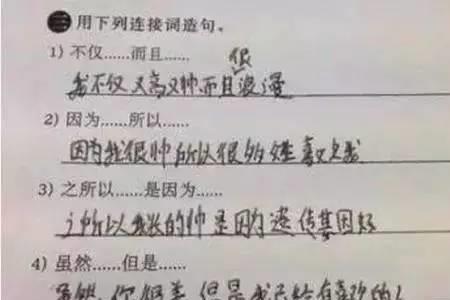 三 用下列连接词造句。
1) 不仅……而且……
我不仅又高又帅而且很浪漫
2) 因为……所以……
因为我很帅所以很多姓喜欢我
3) 之所以……是因为……
之所以我长的帅是因为遗传基因好
4) 虽然……但是……
虽然你很美但是我已经有喜欢的人